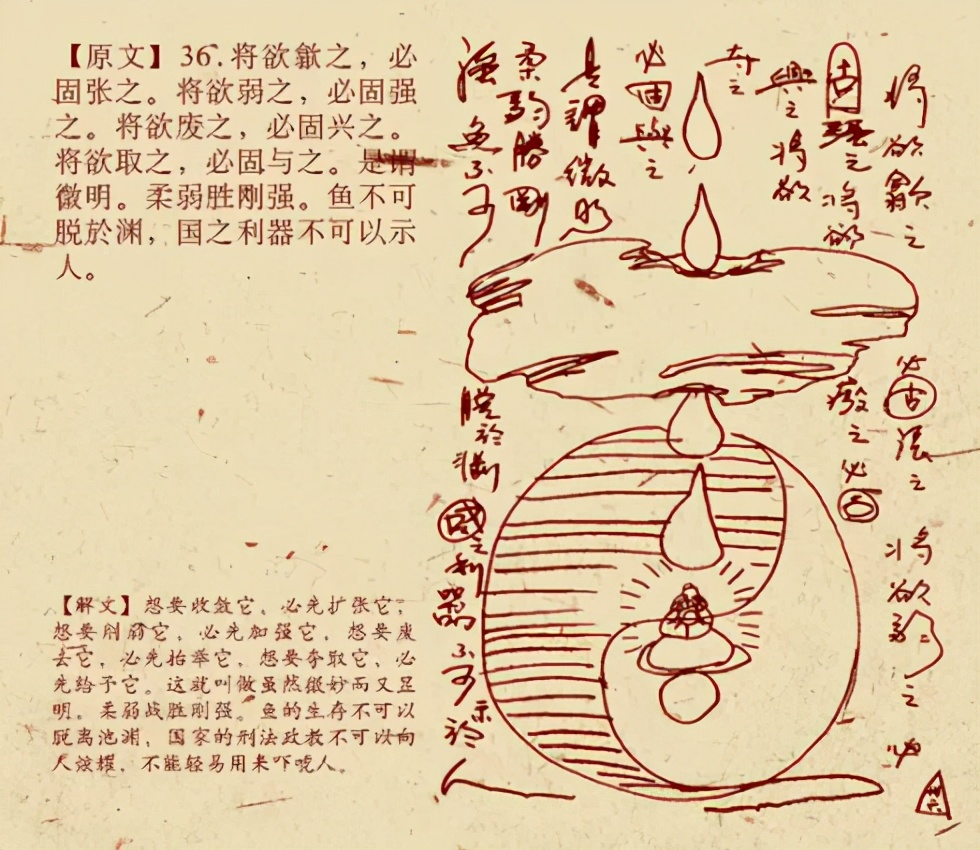 【原文】36.将欲歙之，必
固张之。将欲弱之，必固强
之。将欲废之，必固兴之。
将欲取之，必固与之。是谓
微明。柔弱胜刚强。鱼不可
脱於渊，国之利器不可以示
人。
【解文】想要收敛它，必先扩张它；
想要削弱它，必先加强它，想要废
去它，必先抬举它，想要夺取它，必
先给予它。这就叫做虽然微妙而又显
明。柔弱战胜刚强。鱼的生存不可以
脱离池渊，国家的刑法政教不可以向
人炫耀，不能轻易用来吓唬人。
將欲歙之
必古張之將欲弱之必
古强之將欲
廢之必古
興之將欲
奪之
必固與之
是謂微明
柔弱勝剛
强魚不可
脱於淵國之利器不可示於人